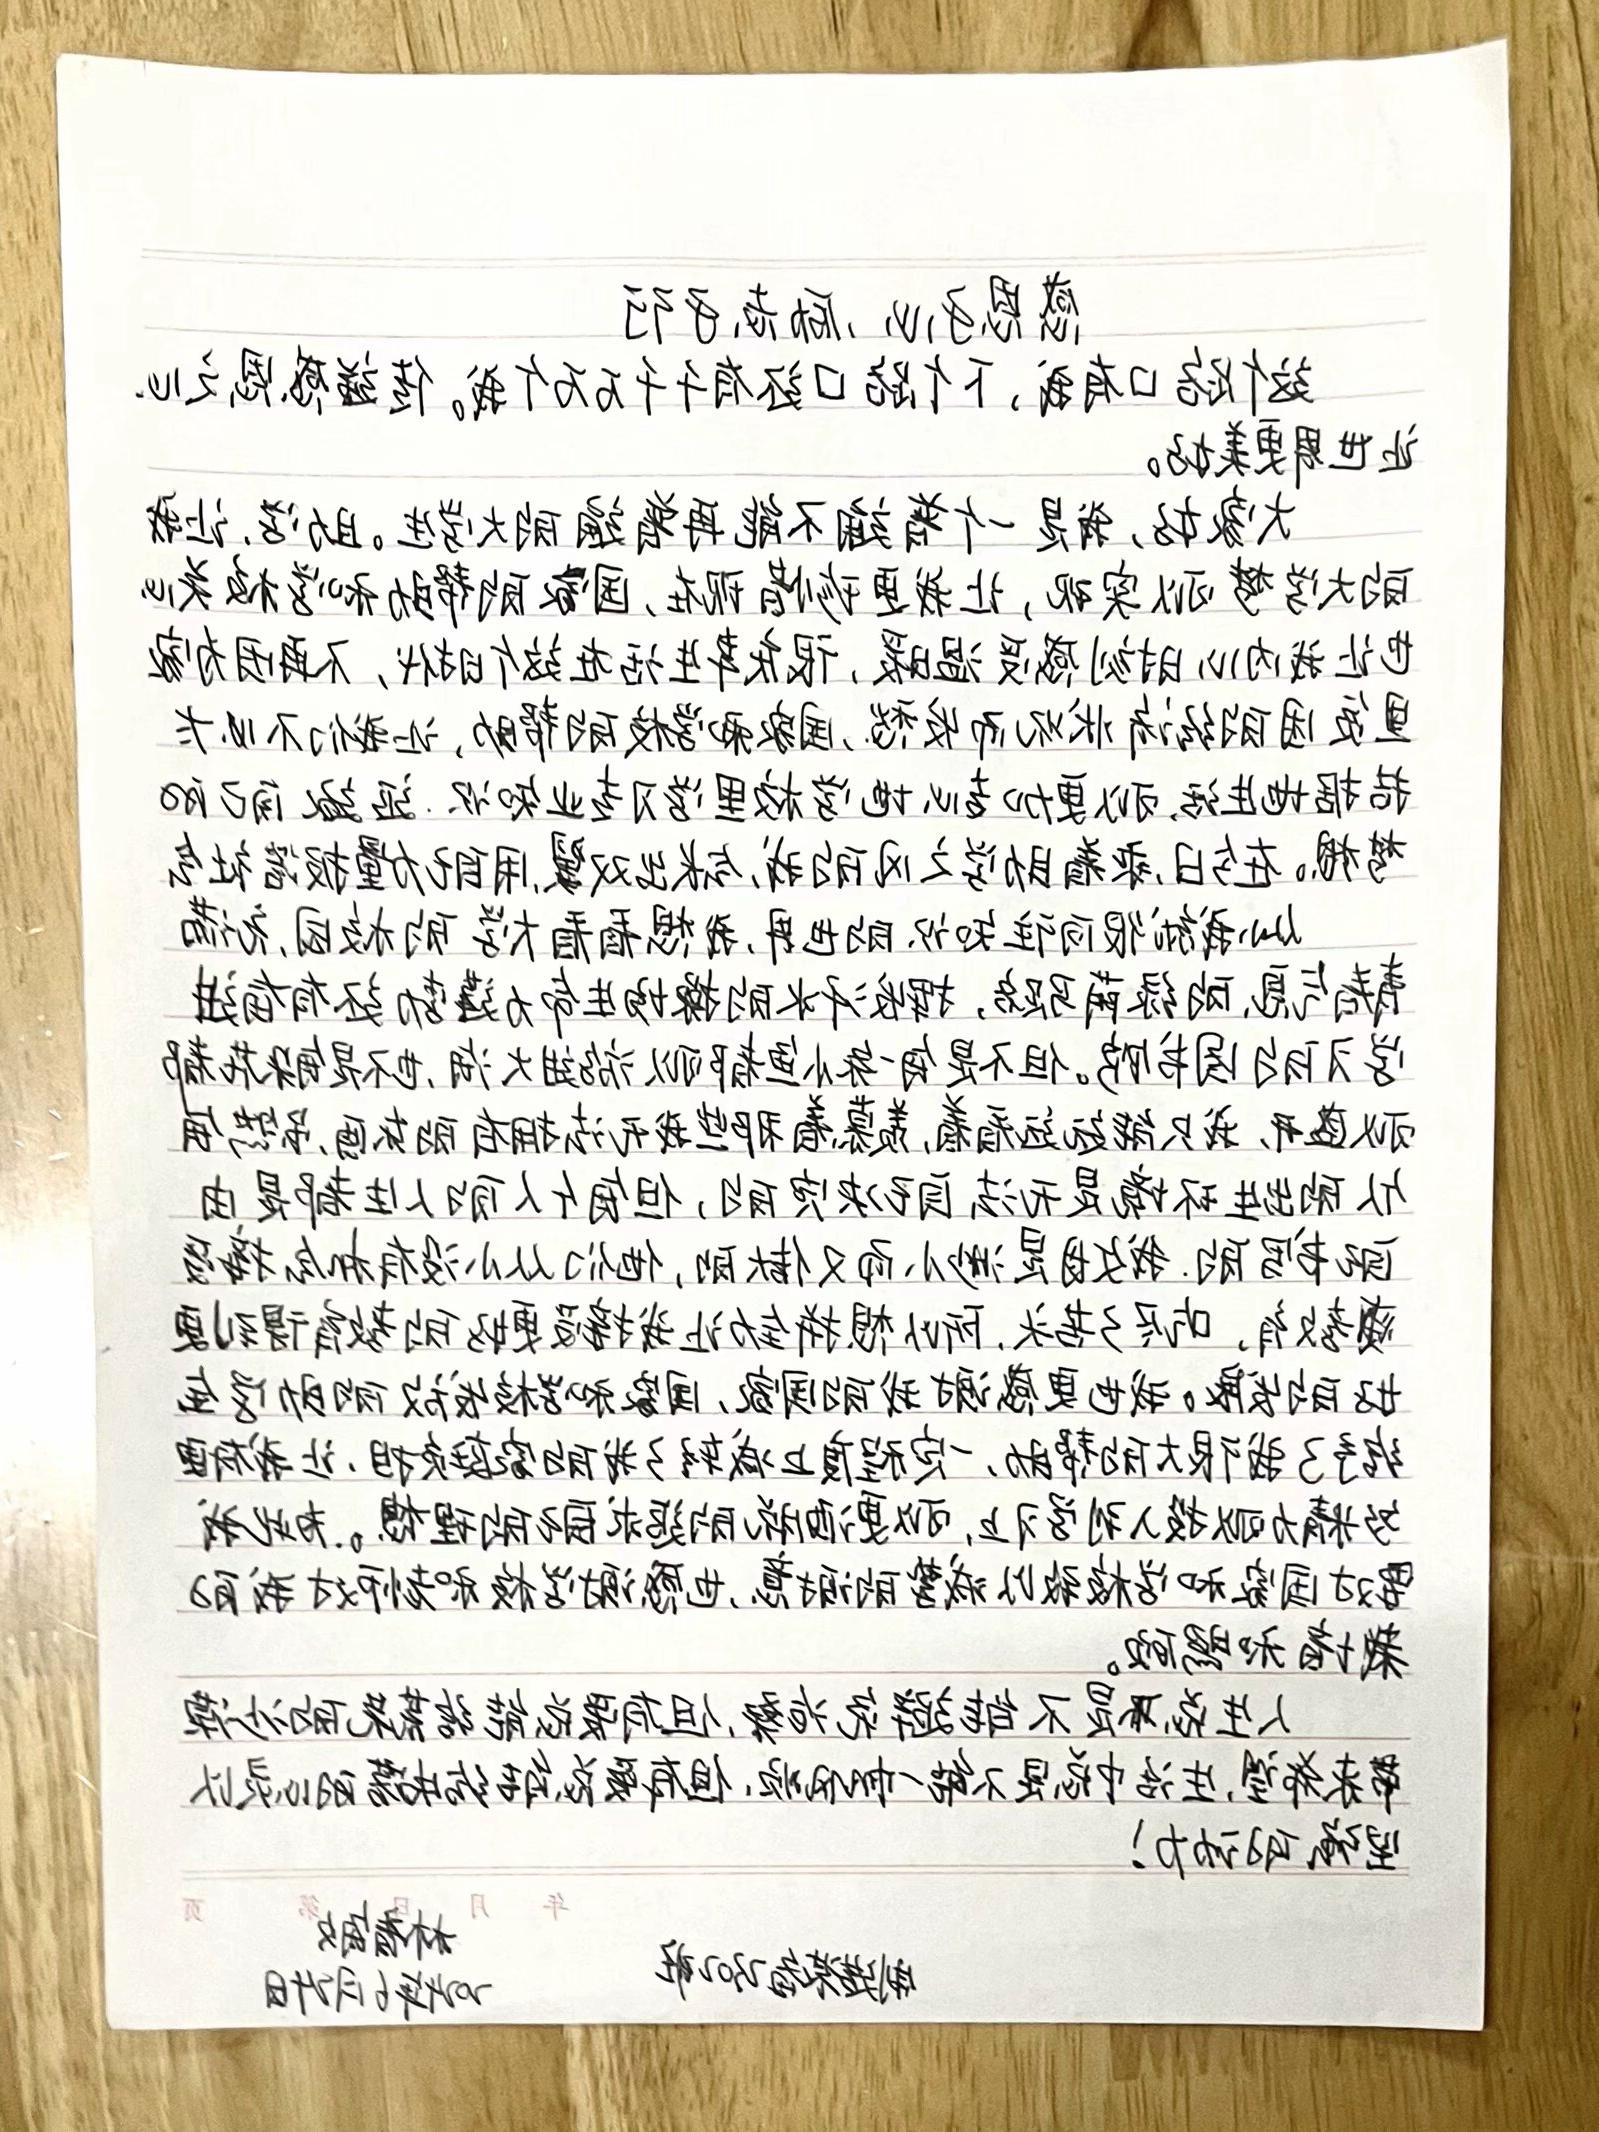 感恩于心,励志于行
这个路口有我,下个路口还有千千万万个我。传递感恩之心
让世界更美好。
大家好,我是一个普通不能再普通的大学生。助学,让我
的大学梦可以实现,让我更珍惜现在,国家的帮助和学校关心
也让我内心时刻感受温暖,很庆幸生活在这个时代,不再因为家
里贫困的经济状况而发愁,国家和学校的帮助,让我们不必太
拮据地生活,可以更加专心地学校里学习专业知识.追逐自己的
梦想。在今日,乘着助学之风的我,会长出双翼,用自己力量报答社会
从小我就很向往知识的世界,我想看看大学的校园,充满
青春气息的绿茵跑,挥发汗水的操场生命力蓬勃还有奋进
学习的图书馆。但不是每一条小鱼都可以游进大海,也不是每朵花都
可以盛开,我只能远远看着,羡慕着那些我无法拥有的东西,虽然每
个人的出生环境是无法自己决定的,但每个人的人生都是由
自己书写的.我父母是渺小而又伟大的,他们从小没有机会接受
教育,吃尽了苦头,所以想拼全力让我接受更好的教育得到更
好的发展。我也更感谢我的国家,国家和学校发放的助学金
给予了我很大的帮助,一定程度上减轻了我的家庭负担,让我有更
多精力可以投入到学习上,可以更洒脱的追求自己的理想。.为此我
要对国家和学校致以诚挚的谢意,也感谢学校和老师对我的
栽培和照顾。
人生总不是不能避免治,但有爱总能给荒漠的沙漠
带来希望,生活中总是不能一帆风顺,但有爱总能给脆弱的心灵以
坚强的动力!
年 月 日 第 页
林春
2024年6月24日
2302班